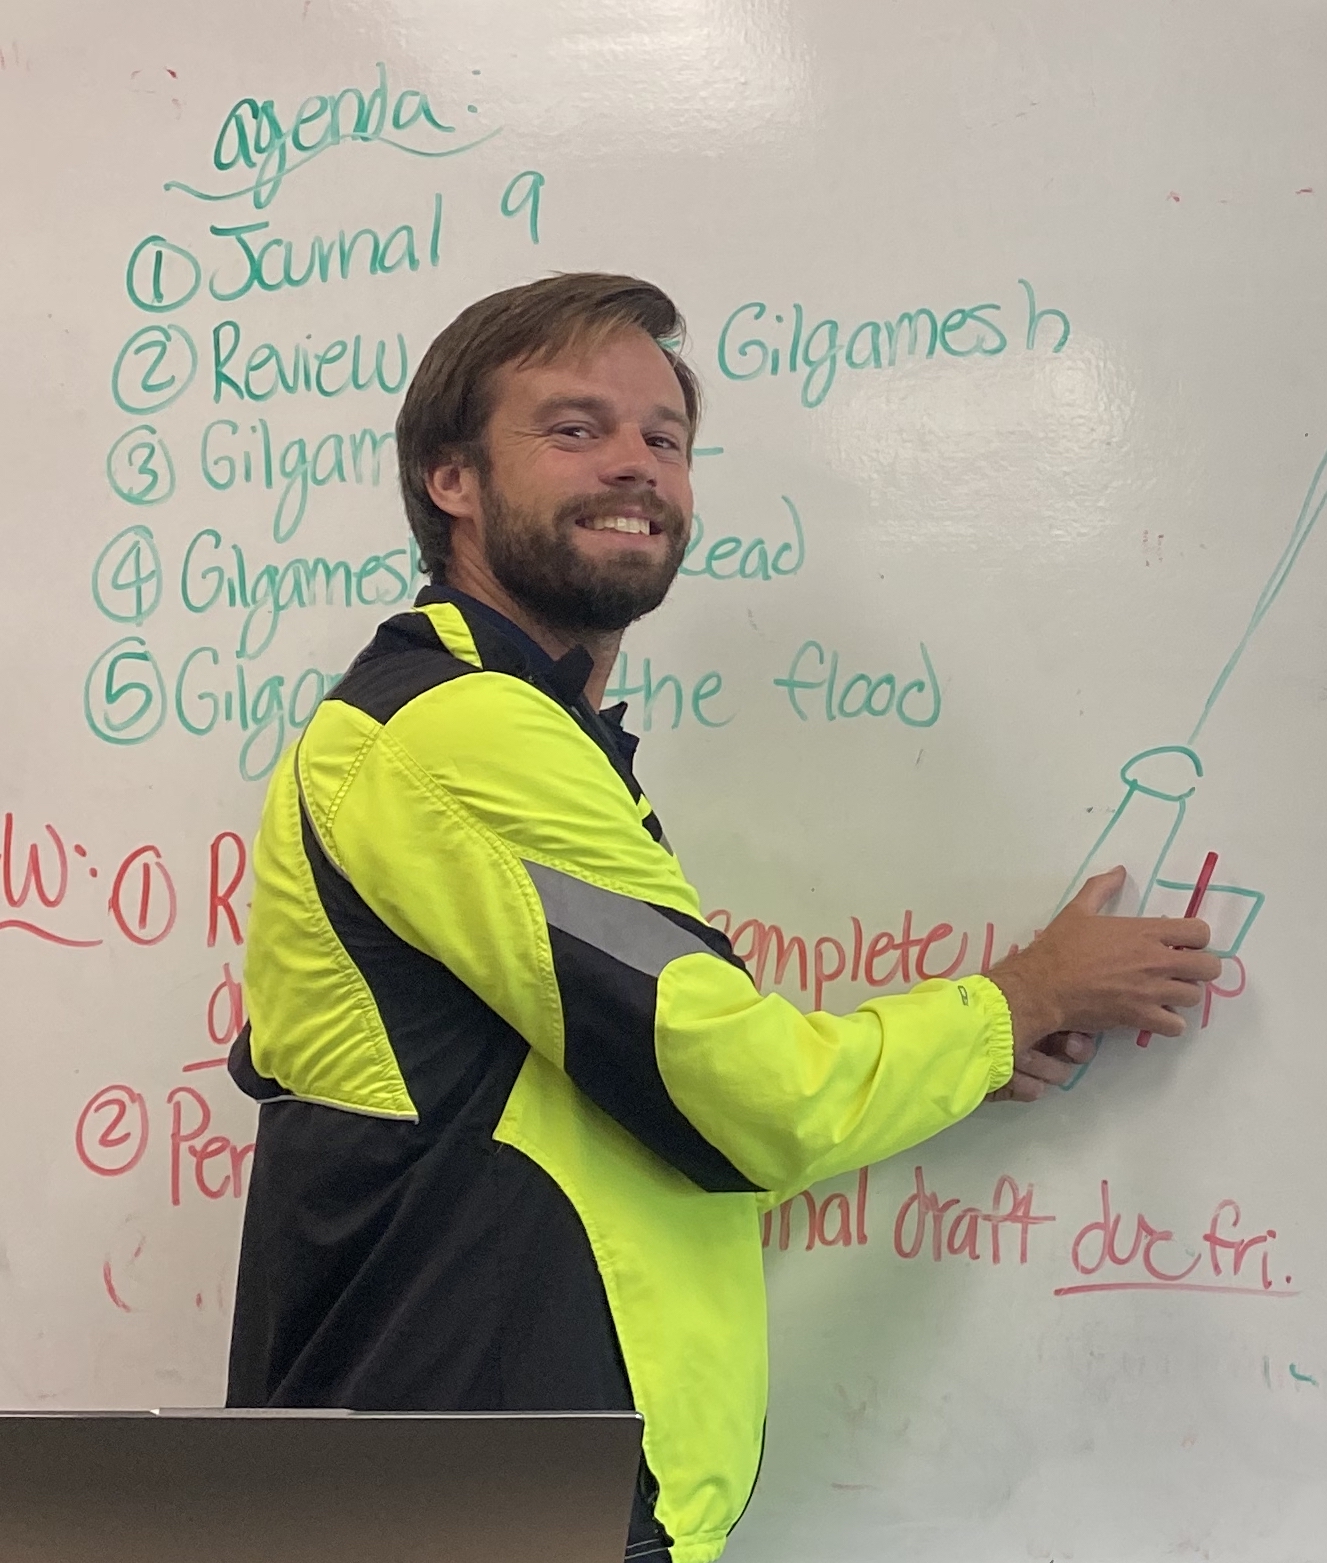 agenda:
① Journal 9
② Review Gilgamesh
③ Gilgam -
④ Gilgamesh Read
⑤ Gilga the flood
W: ① R complete
② Per inal draft due fri.